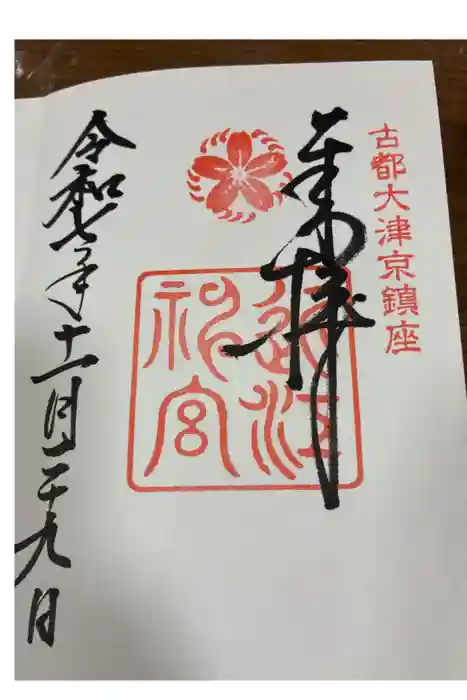 古都大津京鎮座
奉拝
近江
神宮
令和七年十一月二十九日